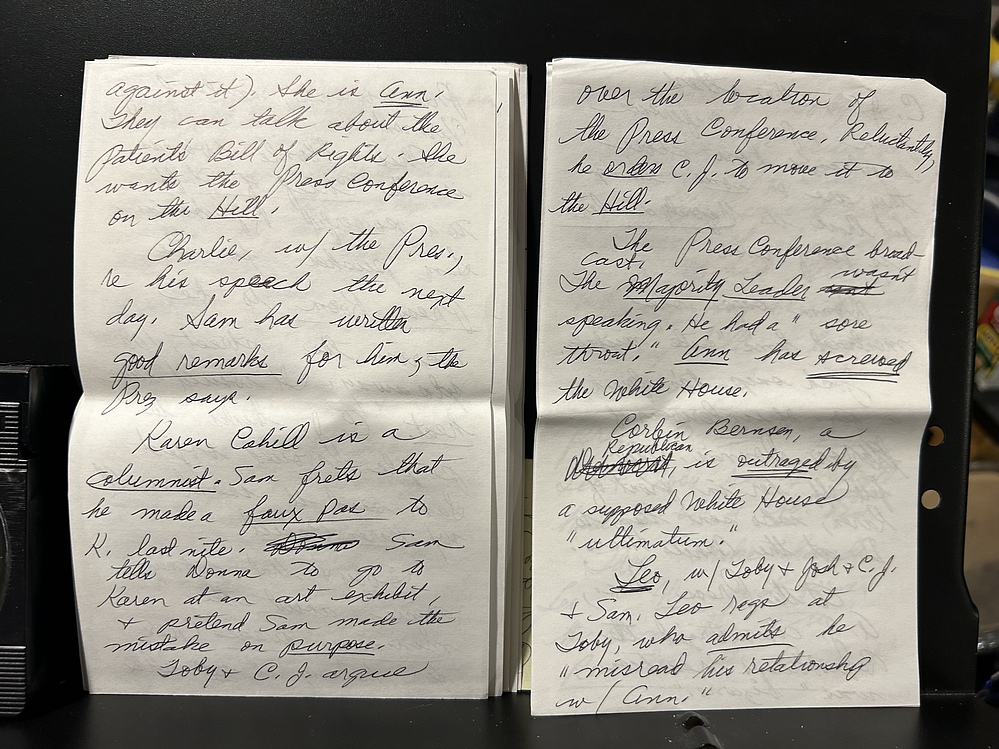 against it). She is Ann.
They can talk about the
Patient's Bill of Rights. She
wants the Press Conference
on the Hill.
Charlie, w/ the Pres.,
re his speech the next
day. Sam has written
good remarks for him, the
Prez says.
Karen Cahill is a
columnist. Sam frets that
he made a faux pas to
K. last nite. Sam
tells Donna to go to
Karen at an art exhibit,
+ pretend Sam made the
mistake on purpose.
Toby + C.J. argue
over the location of
the Press Conference. Reluctantly,
he orders C.J. to move it to
the Hill.
The Press Conference broad-
cast.
The Majority Leader wasn't
speaking. He had a "sore
throat." Ann has screwed
the White House.
Corbin Bernsen, a
Republican, is outraged by
a supposed White House
"ultimatum."
Leo, w/ Toby + Josh + C.J.
+ Sam. Leo rags at
Toby, who admits he
"misread his relationship
w/ Ann."